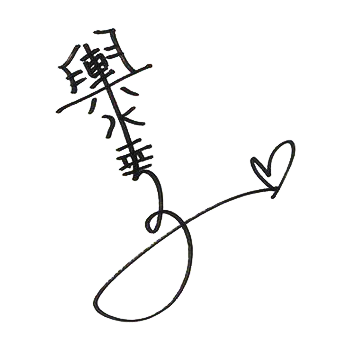 輿水幸子